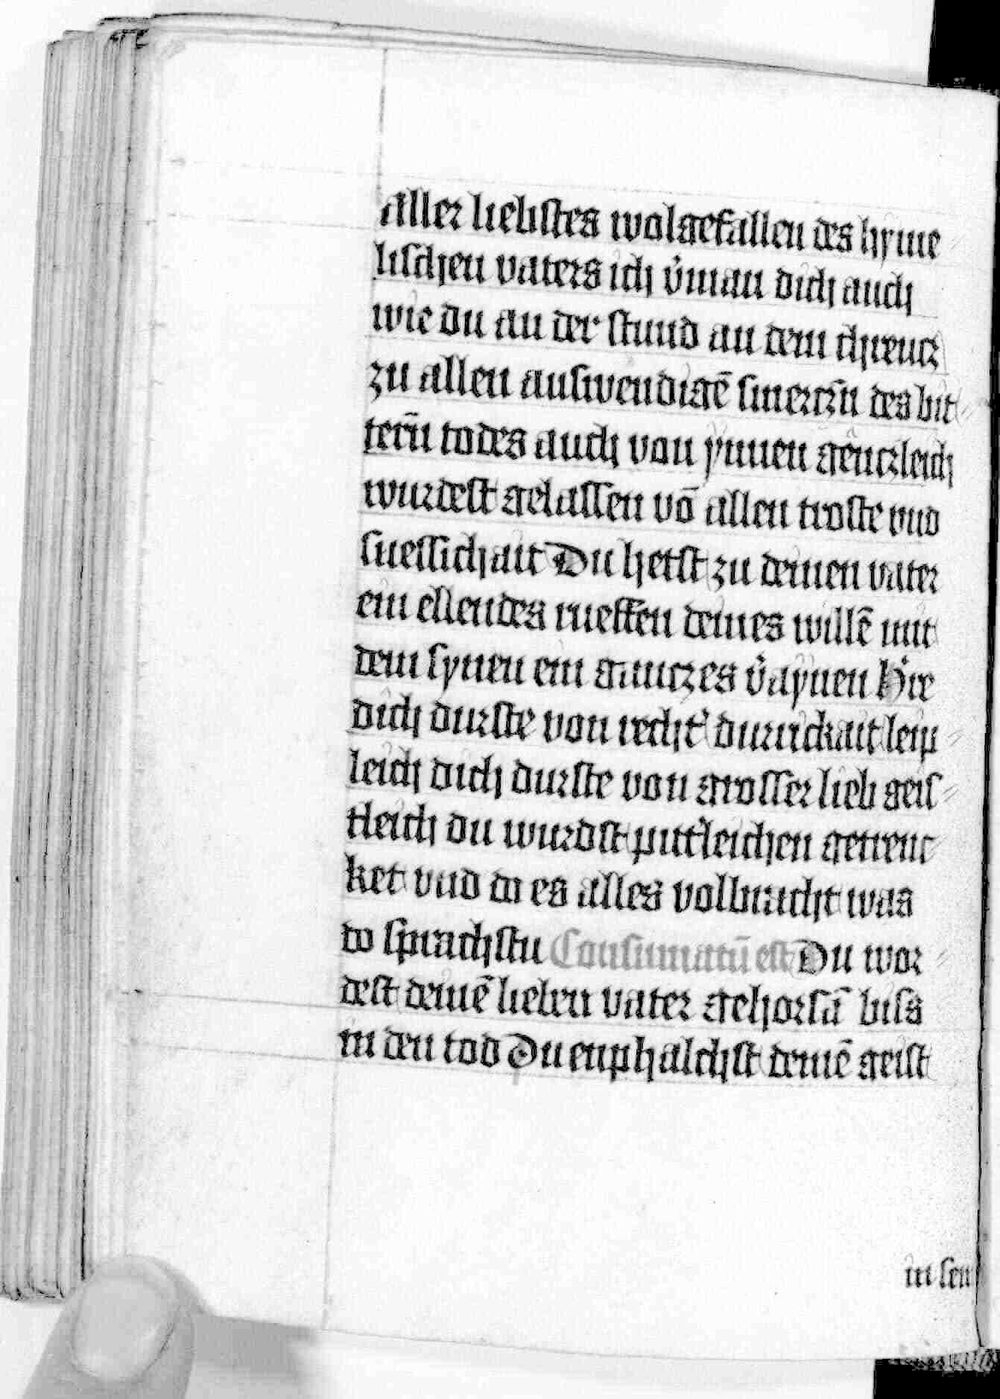 Aller liebstes wolgefallen des hyme
lischen vaters ich v̓man dich auch
wie du an der stund an dem chreucz
zu allen auswendigē smerczn̄ des bit
tern̄ todes auch von ynnen gēnczleich
wurdest gelassen vō allen troste vnd
suessichait Du hetst zu deinen vater
ein ellendes rueffen deines willē mit
dem synen ein ganczes v̓aynen Hie
dich durste von recht̓ durrickait leip
leich dich durste von grosser lieb geis
tleich du wurdst pitt̓leichen getrenc
ket vnd do es alles volbracht was
do sprachstu Consumatū est Du wor
dest deinē lieben vater gehorsā biss
in den tod Du enphalchst deinē geist
in sein